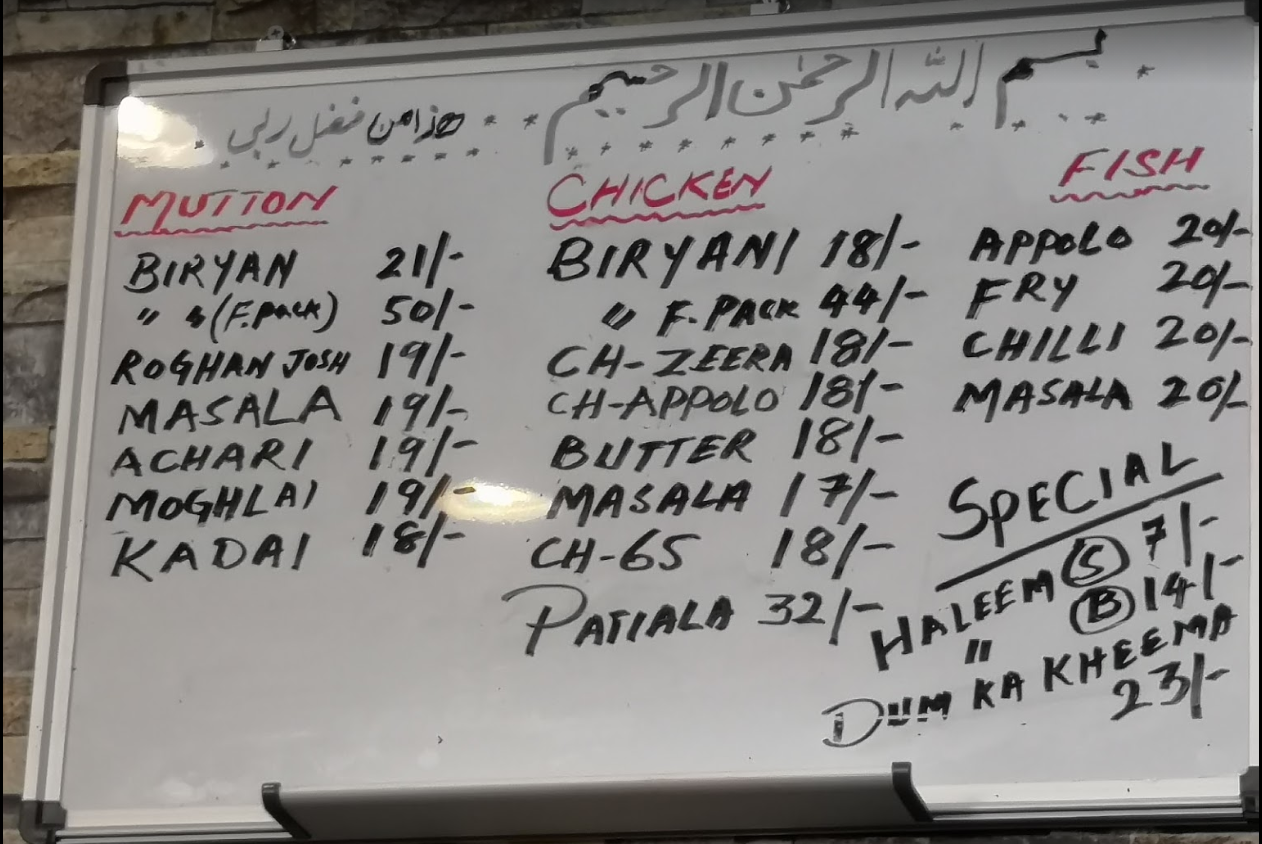 بسم الله الرحمن الرحيم
هذا من فضل ربي
MUTTON
BIRYAN 21/-
" " (F.PACK) 50/-
ROGHAN JOSH 19/-
MASALA 19/-
ACHARI 19/-
MOGHLAI 19/-
KADAI 18/-
CHICKEN
BIRYANI 18/-
" F.PACK 44/-
CH-ZEERA 18/-
CH-APPOLO 18/-
BUTTER 18/-
MASALA 17/-
CH-65 18/-
PATIALA 32/-
FISH
APPOLO 20/-
FRY 20/-
CHILLI 20/-
MASALA 20/-
SPECIAL
HALEEM (S) 7/-
" (B) 14/-
DUM KA KHEEMA
23/-